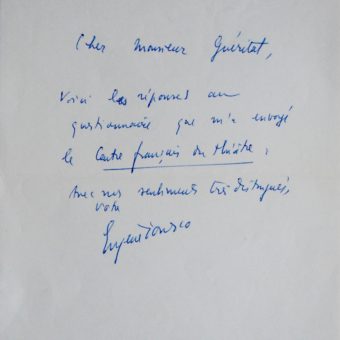 Cher Monsieur Guéritat,
Voici les réponses au
questionnaire que m'a envoyé
le Centre français du théâtre :
Avec mes sentiments très distingués,
votre
Eugène Ionesco